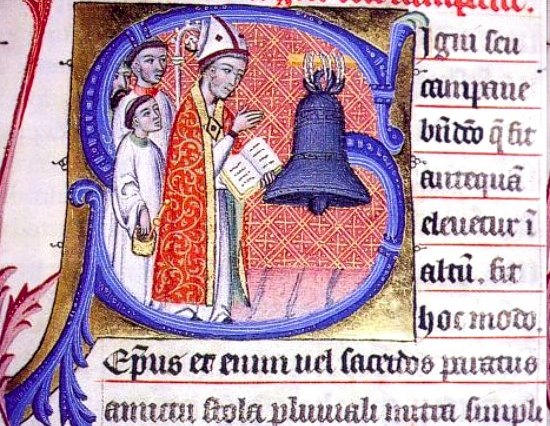 campane.
SIgni seu
campane
bn̄dcō q̄ fit
antequā
eleuetur ī
altū. fit
hoc modo.
Ep̄us et enim uel sacerdos paratus
amictu stola pluuiali mitra simpli